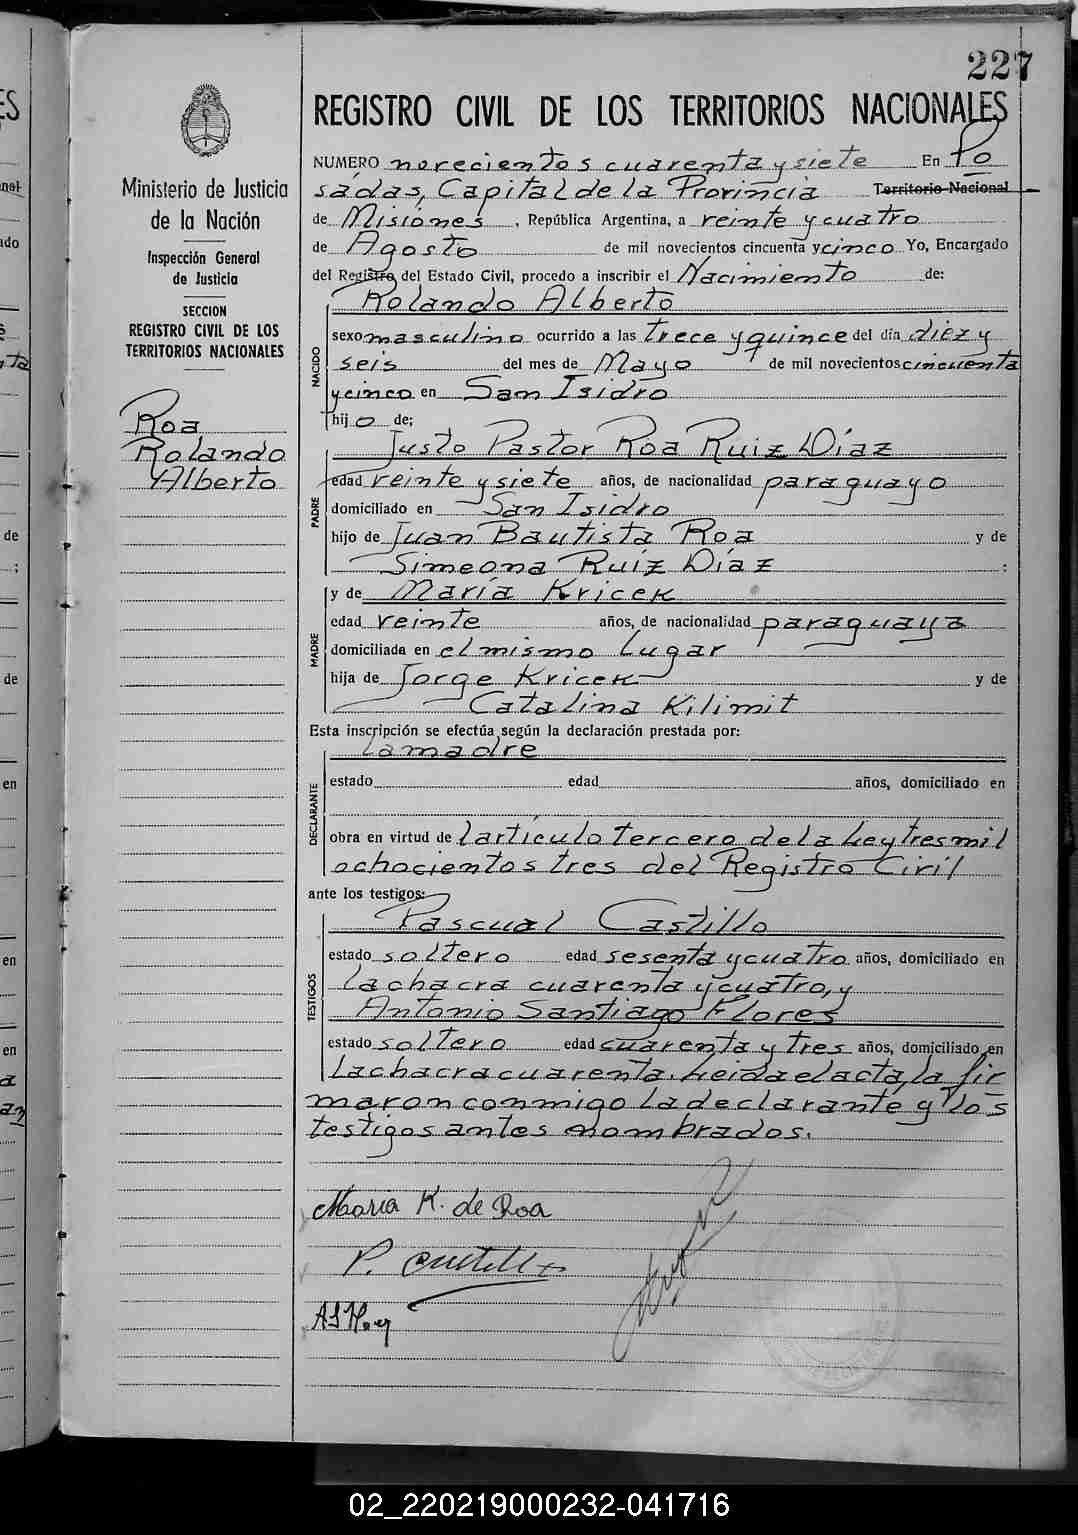 227
REGISTRO CIVIL DE LOS TERRITORIOS NACIONALES
NUMERO novecientos cuarenta y siete En Po
sadas, Capital de la Provincia Territorio Nacional
de Misiones, República Argentina, a veinte y cuatro
de Agosto de mil novecientos cincuenta y cinco Yo, Encargado
del Registro del Estado Civil, procedo a inscribir el Nacimiento de:
Rolando Alberto
NACIDO
sexo masculino ocurrido a las trece y quince del día diez y
seis del mes de Mayo de mil novecientos cincuenta
y cinco en San Isidro
hijo de:
Justo Pastor Roa Ruiz Díaz
PADRE
edad veinte y siete años, de nacionalidad paraguayo
domiciliado en San Isidro
hijo de Juan Bautista Roa y de
Simeona Ruiz Díaz :
y de María Kricek
MADRE
edad veinte años, de nacionalidad paraguaya
domiciliada en el mismo lugar
hija de Jorge Kricek y de
Catalina Kilimit
Esta inscripción se efectúa según la declaración prestada por:
la madre
DECLARANTE
estado edad años, domiciliado en
obra en virtud de l artículo tercero de la Ley tres mil
ochocientos tres del Registro Civil
ante los testigos:
Pascual Castillo
TESTIGOS
estado soltero edad sesenta y cuatro años, domiciliado en
la chacra cuarenta y cuatro, y
Antonio Santiago Flores
estado soltero edad cuarenta y tres años, domiciliado en
la chacra cuarenta. Leida el acta, la fir
maron conmigo la declarante y los
testigos antes nombrados.
María K. de Roa
P. Castillo
Ministerio de Justicia
de la Nación
Inspección General
de Justicia
SECCION
REGISTRO CIVIL DE LOS
TERRITORIOS NACIONALES
Roa
Rolando
Alberto
02_220219000232-041716